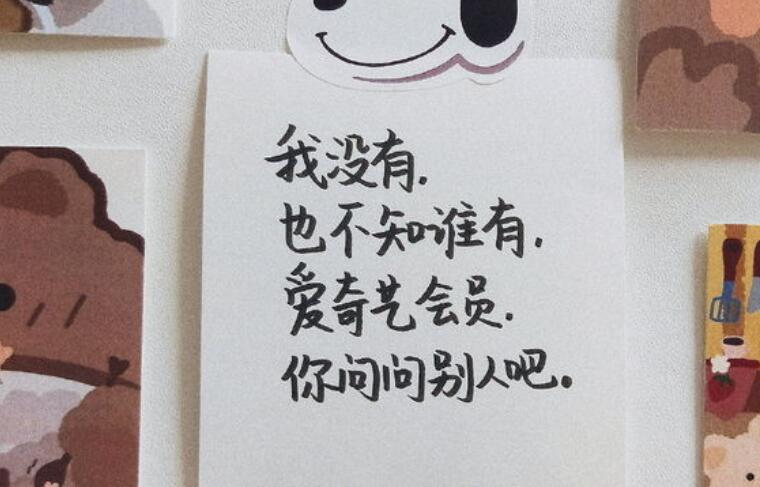 我没有.
也不知谁有.
爱奇艺会员.
你问问别人吧。